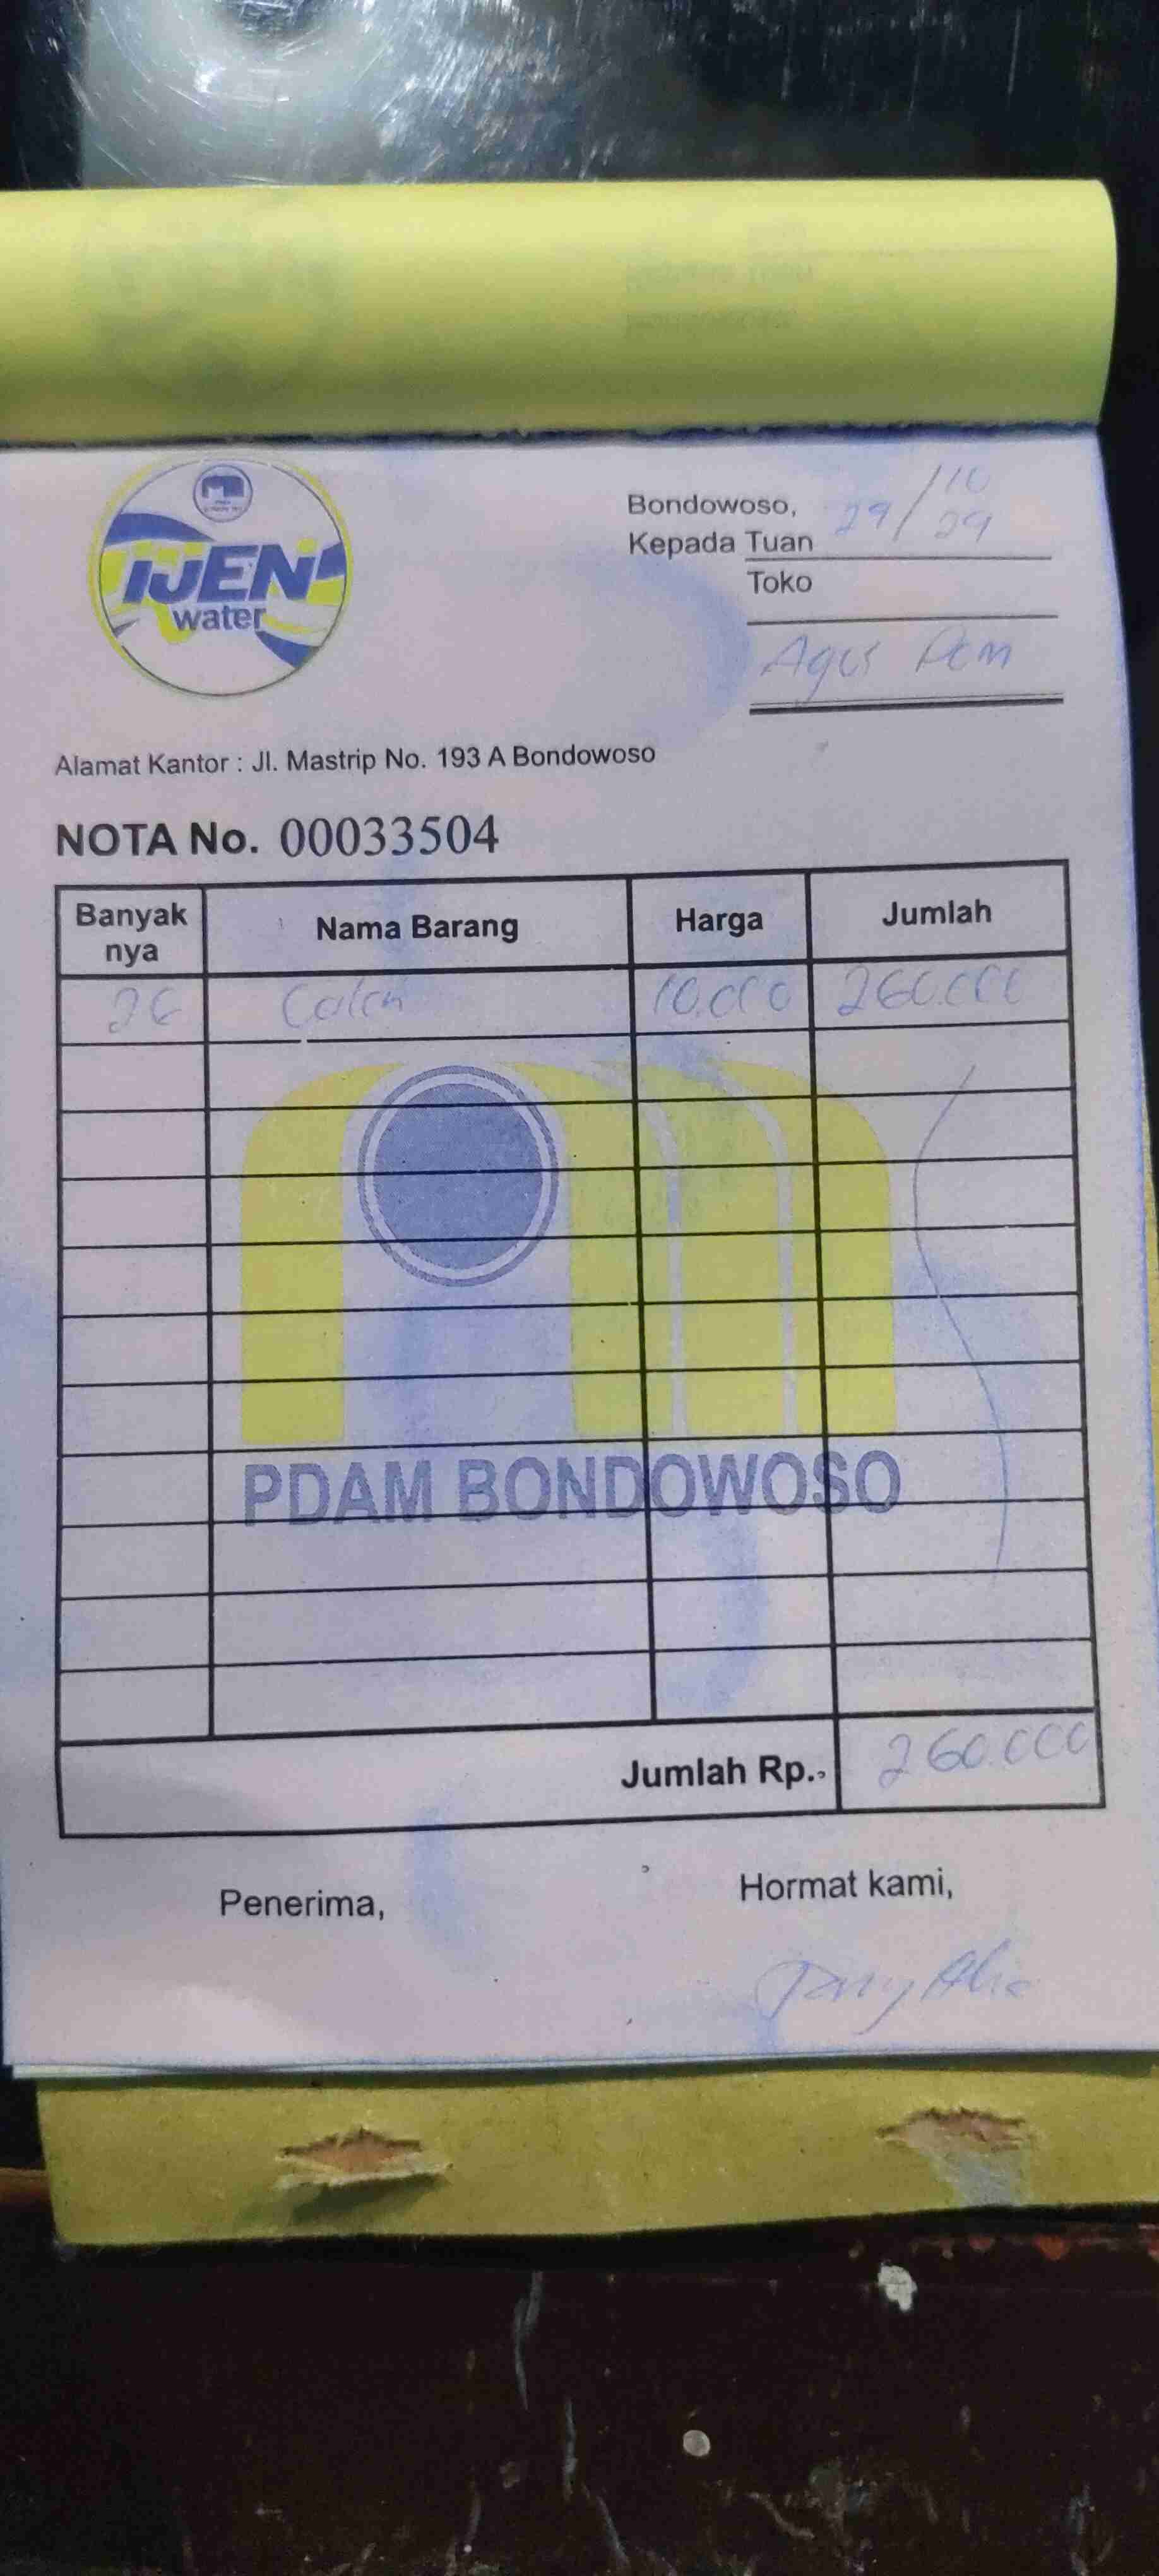 IJEN
water
Bondowoso, 29/10
24
Kepada Tuan
Toko
Agus
Alamat Kantor : Jl. Mastrip No. 193 A Bondowoso
NOTA No. 00033504
Banyak nya Nama Barang Harga Jumlah
26 10.000 260.000
PDAM BONDOWOSO
Jumlah Rp.. 260.000
Penerima, Hormat kami,